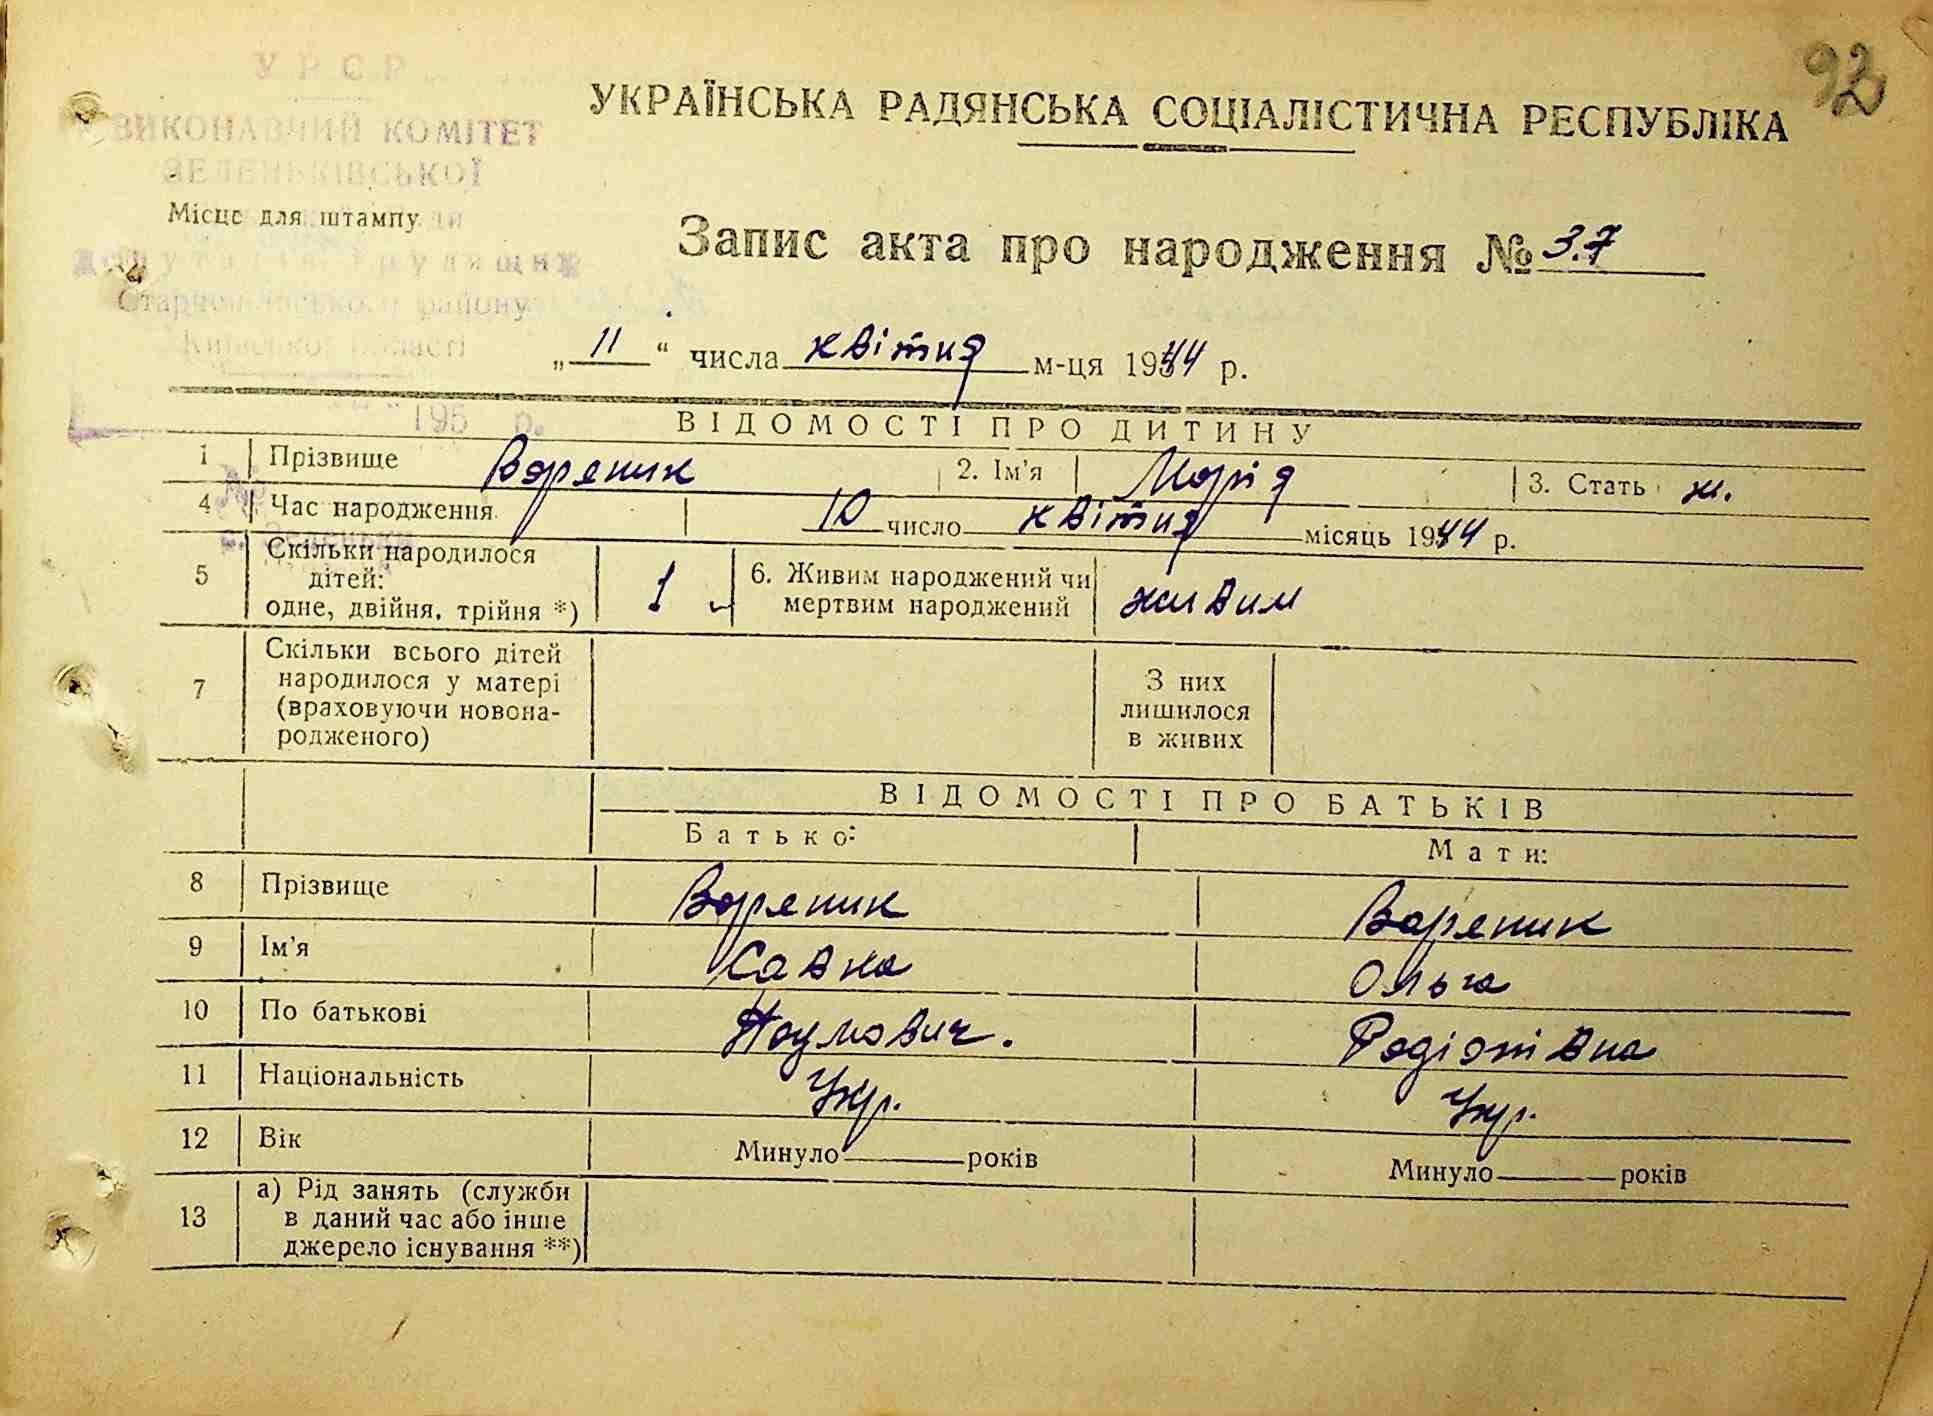 92
УРСР
ВИКОНАВЧИЙ КОМІТЕТ
ЗЕЛЕНЬКІВСЬКОЇ
УКРАЇНСЬКА РАДЯНСЬКА СОЦІАЛІСТИЧНА РЕСПУБЛІКА
Місце для штампу
депутатів трудящих
району
Київської області
195 р.
Запис акта про народження № 37
„ 11 “ числа квітня м-ця 1944 р.
ВІДОМОСТІ ПРО ДИТИНУ
1 Прізвище Вареник 2. Ім'я Марія 3. Стать ж.
4 Час народження 10 число квітня місяць 1944 р.
5 Скільки народилося
дітей:
одне, двійня, трійня *) 1
6. Живим народжений чи
мертвим народжений живим
7 Скільки всього дітей
народилося у матері
(враховуючи новона-
родженого)
З них
лишилося
в живих
ВІДОМОСТІ ПРО БАТЬКІВ
Батько: Мати:
8 Прізвище Вареник Вареник
9 Ім'я Савка Ольга
10 По батькові Наумович. Родіонівна
11 Національність Укр. Укр.
12 Вік Минуло років Минуло років
13 а) Рід занять (служби
в даний час або інше
джерело існування **)